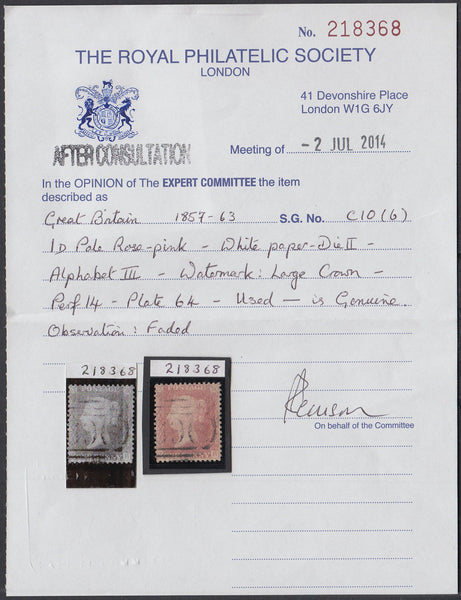 No. 218368
THE ROYAL PHILATELIC SOCIETY
LONDON
41 Devonshire Place
London W1G 6JY
AFTER CONSULTATION
Meeting of - 2 JUL 2014
In the OPINION of The EXPERT COMMITTEE the item
described as
Great Britain 1857-63 S.G. No. C10(6)
1D Pale Rose-pink - White paper - Die II -
Alphabet III - Watermark: Large Crown -
Perf 14 - Plate 64 - Used — is Genuine
Observation: Faded
218368 218368
On behalf of the Committee